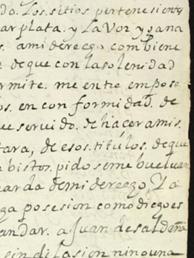 do. Los sitios pertenesientes
ar plata. y la Voz y gana
s. ami derecgo combiene
de que con la solenidad
rmite. me entre empose
os. en conformidad. de
que seruido. de hacer amis.
tara, de esos titulos. de que
a bistos. pido seme bueluan
uarda demi derecgo, Y a
ga posesion como digo es
andar. a Juan de saldaña
sin dilasion ninguna